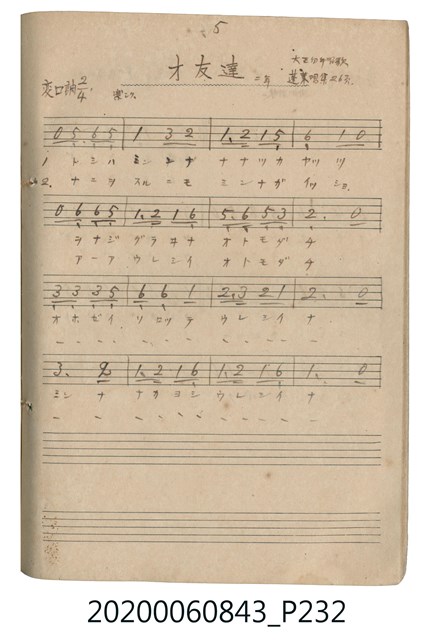 5
オ友達
二年
変ロ調 2/4
楽シク
0 5 6 5 | 1 3 2 | 1. 2 1 5 | 6 1 0
1. トシハ ミンナ ナナツカ ヤツツ
2. ナニヲ スルニモ ミンナガ イッショ
0 6 6 5 | 1. 2 1 6 | 5. 6 5 3 | 2. 0
オナジ グラヰナ オトモダチ
アーア ウレシイ オトモダチ
3 3 3 5 | 6 6 1 | 2. 3 2 1 | 2. 0
オホゼイ ソロッテ ウレシイナ
3. 2 | 1. 2 1 6 | 1. 2 1 6 | 1. 0
ミンナ ナカヨシ ウレシイナ
20200060843_P232